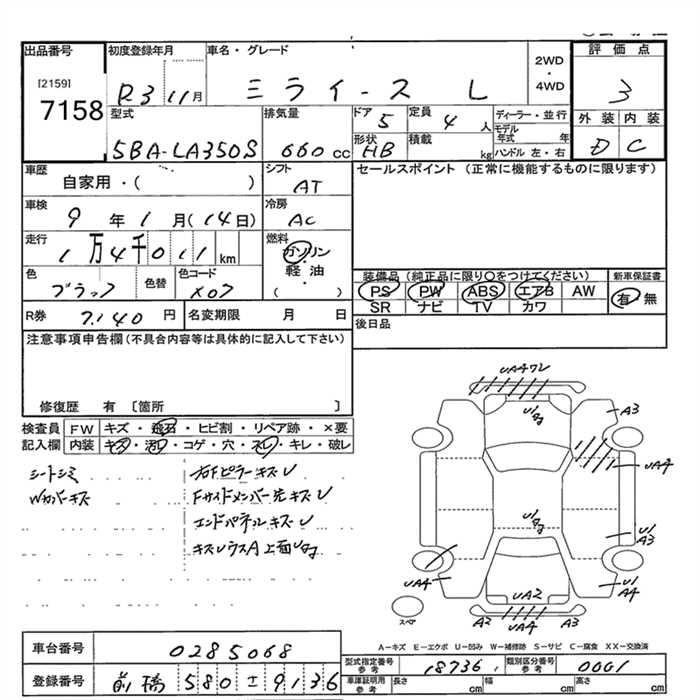 出品番号
[2159]
7158
初度登録年月
R3 11月
車名・グレード
ミライース L
2WD
・
4WD
評価点
3
型式
5BA-LA350S
排気量
660cc
ドア
5
定員
4人
形状
HB
積載
kg
ディーラー・並行
モデル年式 年
ハンドル 左・右
外装 内装
D C
車歴
自家用・( )
シフト
AT
セールスポイント (正常に機能するものに限ります)
車検
9年1月(14日)
冷房
AC
走行
1万4千011km
燃料
ガソリン
・
軽油
・
( )
色
ブラック
色替
色コード
X07
装備品 (純正品に限り〇をつけてください)
新車保証書
PS PW ABS エアB AW
有・無
SR ナビ TV カワ
R券
7.140円
名変期限 月 日
後日品
注意事項申告欄(不具合内容等は具体的に記入して下さい)
修復歴 有 〔箇所 〕
検査員 FW キズ・飛石・ヒビ割・リペア跡・×要
記入欄 内装 キズ・汚れ・コゲ・穴・スレ・キレ・破レ
シートシミ
Wカバーキズ
右Fピラーキズ U
Fサイドメンバー先キズ U
エンドパネルキズ U
上面
UA4ワレ
A3
UA4
U1
A3
U1
A4
UA4
UA2
A2 UA4 A3
スペア
A-キズ E-エクボ U-凹み W-補修跡 S-サビ C-腐食 XX-交換済
車台番号
0285068
登録番号
前橋 580 ミ 9136
型式指定番号 参考
18736
類別区分番号 参考
0001
車庫証明用 参考
長さ cm 幅 cm 高さ cm